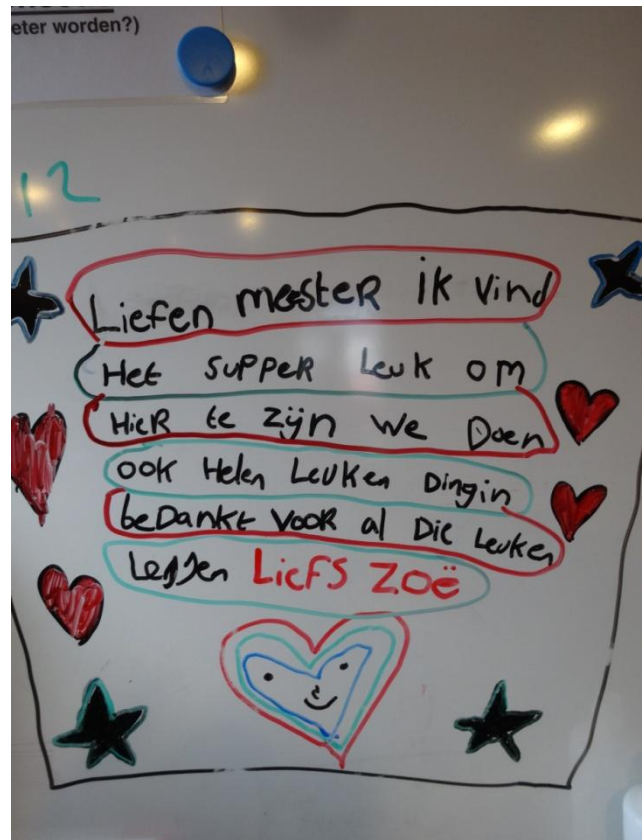 eter worden?)
12
Liefen meester ik vind
Het supper Leuk om
Hier te zijn we Doen
ook Helen Leuken Dingin
beDankt voor al Die Leuken
Lessen Liefs Zoë